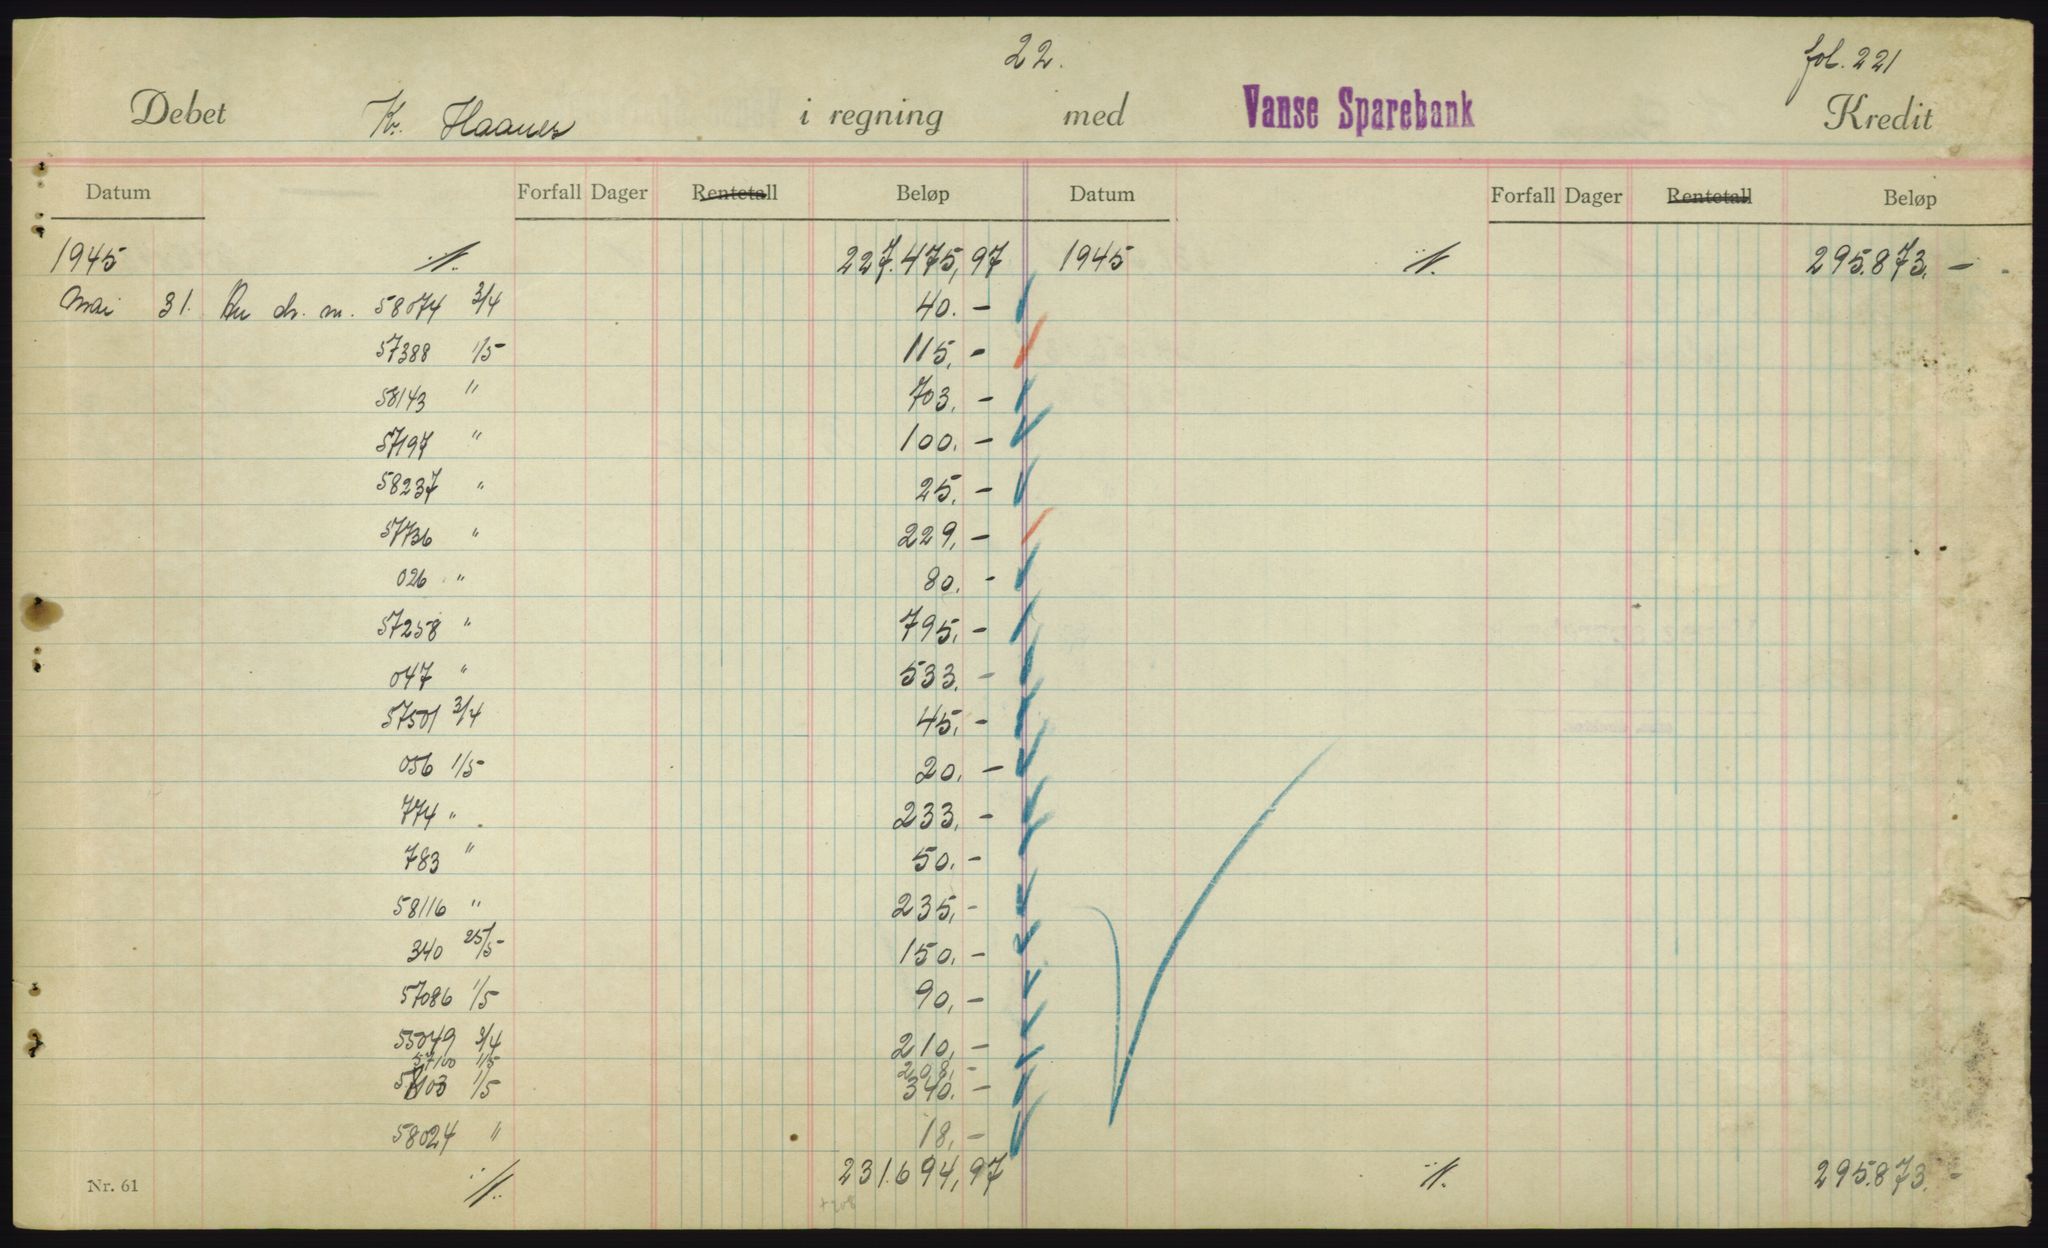 22.
fol. 221
Debet Kr. Haanes i regning med Vanse Sparebank Kredit
Datum Forfall Dager Rentetall Beløp Datum Forfall Dager Rentetall Beløp
1945 ·/· 227.475,97 1945 ·/· 295.873.-
Mai 31. ch. m. 58074 3/4 40.-
57388 1/5 115,-
58143 " 703.-
57197 " 100.-
58237 " 25.-
57736 " 229,-
026 " 80.-
57258 " 795.-
047 " 533.-
57501 3/4 45,-
056 1/5 20.-
774 " 233,-
783 " 50.-
58116 " 235,-
340 25/5 150.-
57086 1/5 90,-
55049 3/4 210,-
57100 1/5 208,-
58103 1/5 340.-
58024 " 18,-
·/· 231.694,97 ·/· 295.873.-
+208
Nr. 61